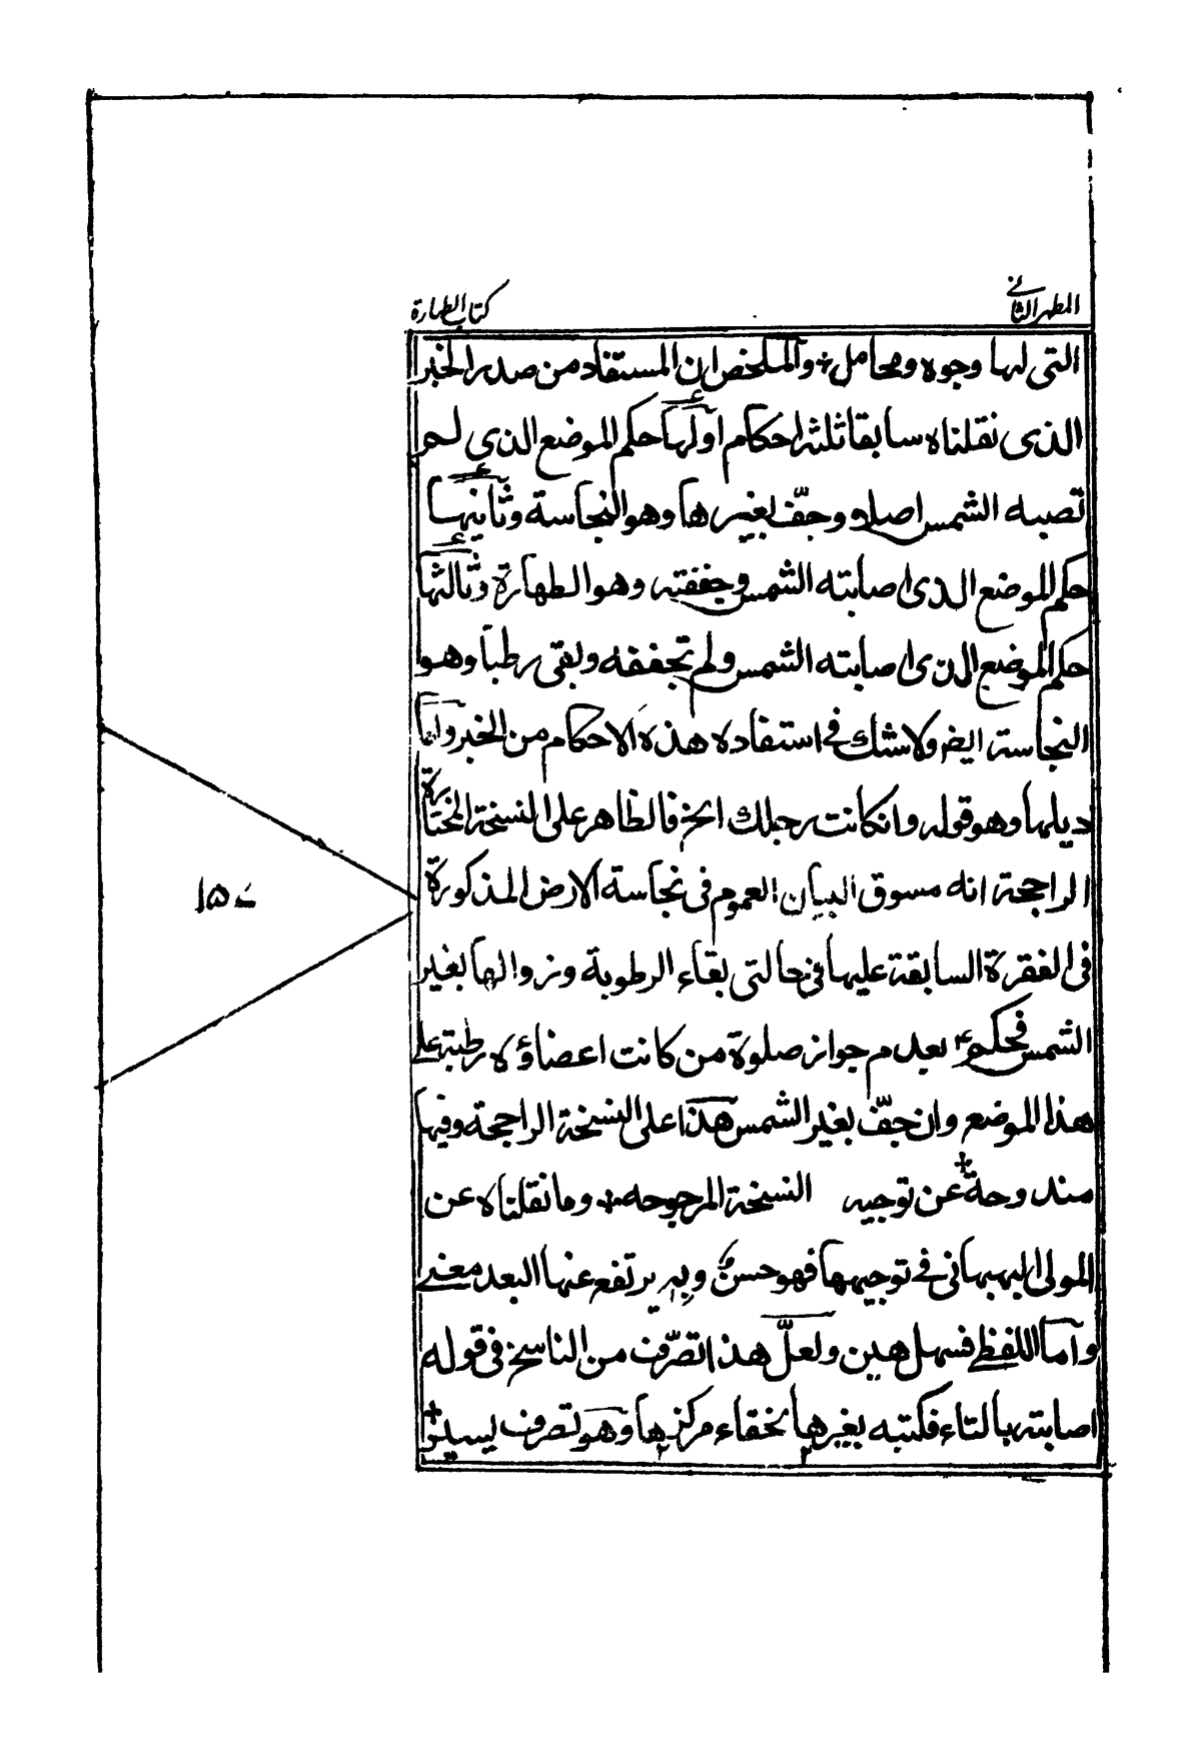 المطهر الثاني
كتاب الطهارة
التى لها وجوه ومحامل والملخص ان المستفاد من صدر الخبر
الذى نقلناه سابقا ثلثة احكام اولها حكم الموضع الذي لم
تصبه الشمس اصلا وجفّ بغيرها وهو النجاسة وثانيها
حكم الموضع الذى اصابته الشمس وجففته وهو الطهارة وثالثها
حكم الموضع الذى اصابته الشمس ولم تجففه وبقى رطبا وهو
النجاسة ايض ولا شك في استفادة هذه الاحكام من الخبر واما
ذيلها وهو قوله وانكانت رجلك الخ فالظاهر على النسخة المختارة
الراجحة انه مسوق البيان العموم فى نجاسة الارض المذكورة
فى الفقرة السابقة عليها في حالتى بقاء الرطوبة وزوالها بغير
الشمس فحكم ع بعدم جواز صلوة من كانت اعضاؤه رطبة على
هذا الموضع وان جفّ بغير الشمس هذا على النسخة الراجحة وفيها
مندوحة عن توجيه النسخة المرجوحه وما نقلناه عن
المولى البهبهانى في توجيهها فهو حسن وبه يرتفع عنها البعد معنى
واما اللفظ فسهل هين ولعلّ هذا تصرّف من الناسخ فى قوله
اصابته بالتاء فكتبه بغيرها لخفاء مركزها وهو تصرف يسير
١٥